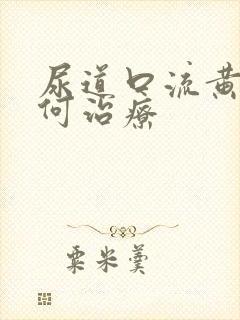 尿道口流黄
何治療
粟米羹